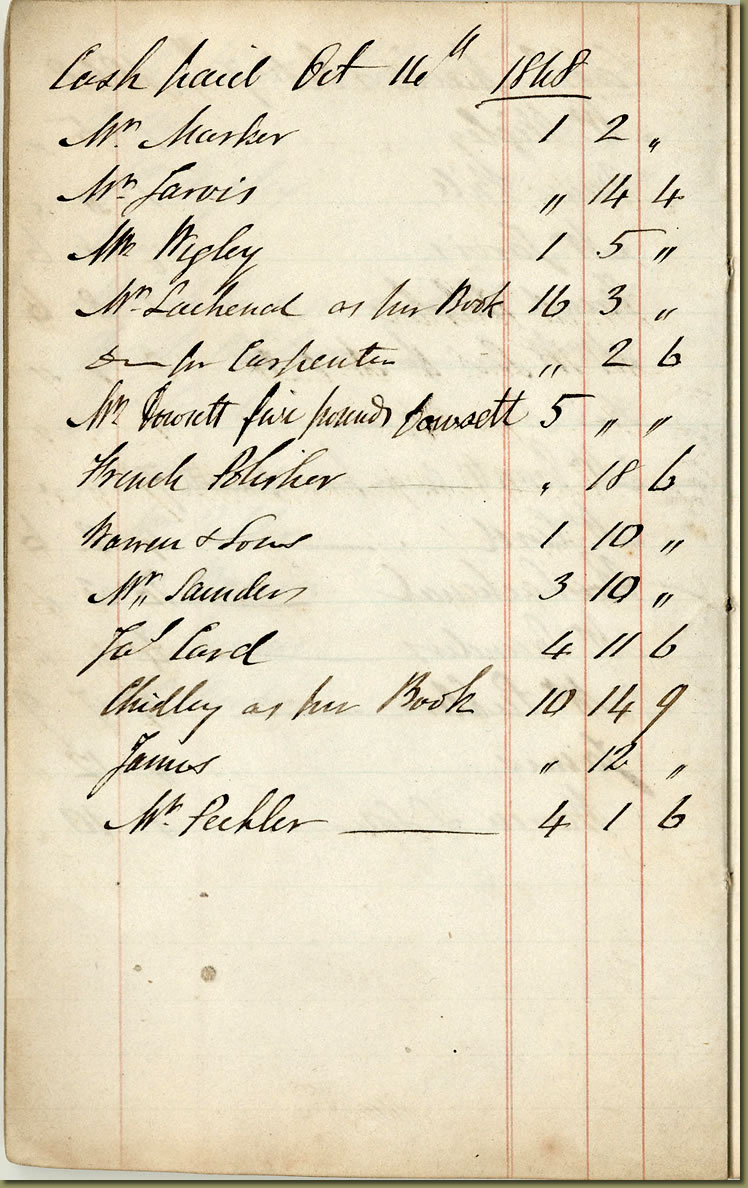 Cash paid Oct 14th 1848
Mr. Marker 1 2 "
Mr. Jarvis " 14 4
Mr. Wigley 1 5 "
Mr. Lachenal as per Book 16 3 "
Do for Carpenter " 2 6
Mr. Dowsett five pounds Dowsett 5 " "
French Polisher " 18 6
Warren & Sons 1 10 "
Mr. Saunders 3 10 "
Jas Card 4 11 6
Chidley as per Book 10 14 9
James " 12 "
Mr. Pechler 4 1 6